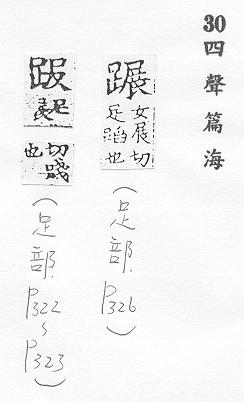 30四聲篇海
蹍
女展切
足蹈也
(足部 P326)
切踐
也
(足部 P322~P323)